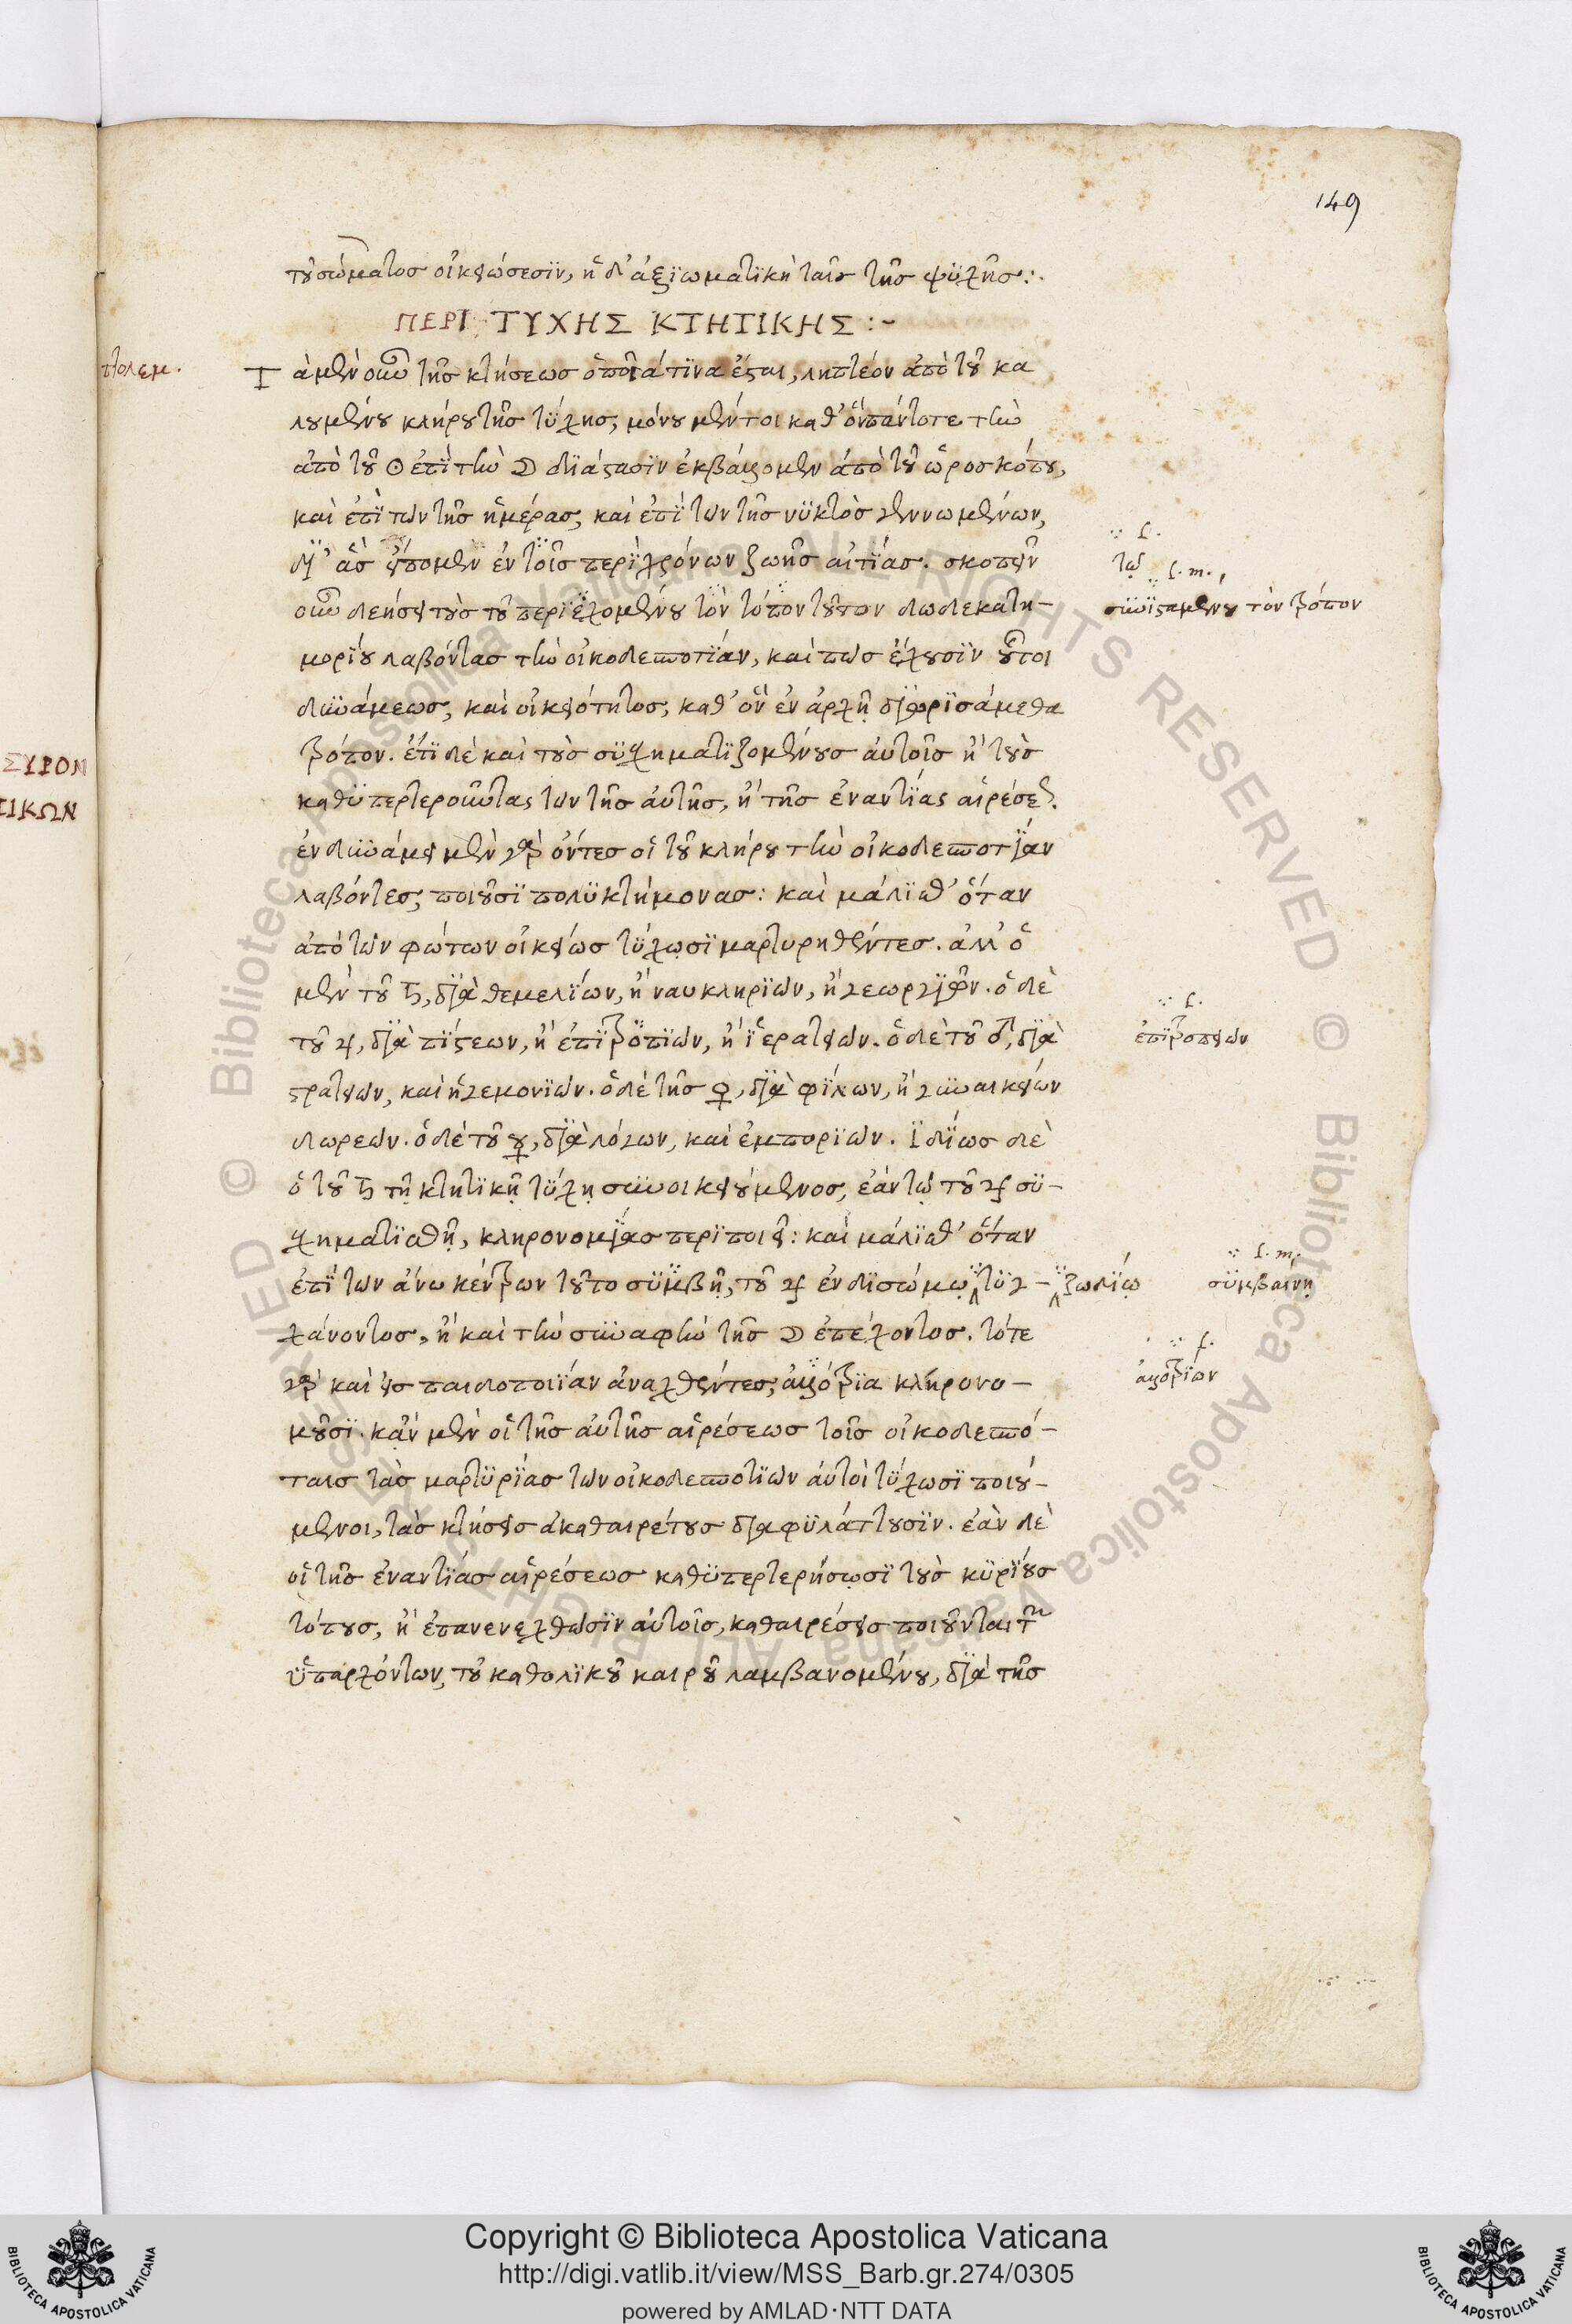 149
τοῦ σώματος οἰκειώσεσϊν, ἡ δ' ἀξϊωματϊκὴ ταῖς τῆς ψϋχῆς:.
ΠΕΡΙ ΤΥΧΗΣ ΚΤΗΤΙΚΗΣ :-
πτολεμ.
Τὰ μὲν οὖν τῆς κτήσεως ὁποῖά τϊνα ἔσται, ληπτέον ἀπὸ τοῦ κα
λουμένου κλήρου τῆς τϋχης, μόνου μέντοι καθ' ὃν πάντοτε τὴν
ἀπὸ τοῦ ☉ ἐπῒ τὴν ☽ δϊάστασϊν ἐκβάλλομεν ἀπὸ τοῦ ὡροσκόπου,
καὶ ἐπῒ τῶν τῆς ἡμέρας, καὶ ἐπῒ τῶν τῆς νϋκτὸς γεννωμένων,
δι' ἃς εἴπομεν ἐν τοῖς περῒ χρόνων ζωῆς αἰτΐας. σκοπεῖν
τῷ
οὖν δεήσει τοὺς τοῦ περϊεχομένου τὸν τόπον τοῦτον δωδεκατη-
σϋνϊσταμένου τὸν τρόπον
μορΐου λαβόντας τὴν οἰκοδεσποτΐαν, καὶ πῶς ἔχουσϊν οὗτοι
δϋνάμεως, καὶ οἰκειότητος, καθ' ὃν ἐν ἀρχῇ δϊωρϊσάμεθα
τρόπον. ἔτϊ δὲ καὶ τοὺς σϋσχηματϊζομένους αὐτοῖς ἢ τοὺς
καθϋπερτεροῦντας τῶν τῆς αὐτῆς, ἢ τῆς ἐναντΐας αἱρέσεως.
ἐν δϋνάμει μὲν γὰρ ὄντες οἱ τοῦ κλήρου τὴν οἰκοδεσποτΐαν
λαβόντες, ποιοῦσϊ πολϋκτήμονας: καὶ μάλϊσθ' ὅταν
ἀπὸ τῶν φώτων οἰκείως τϋχωσϊ μαρτυρηθέντες. ἀλλ' ὁ
μὲν τοῦ ♄, δϊὰ θεμελΐων, ἢ ναυκληρϊῶν, ἢ γεωργϊῶν. ὁ δὲ
τοῦ ♃, δϊὰ πΐστεων, ἢ ἐπϊτροπϊῶν, ἢ ϊερατειῶν. ὁ δὲ τοῦ ♂, δϊὰ
ἐπϊτροπειῶν
στρατειῶν, καὶ ἡγεμονϊῶν. ὁ δὲ τῆς ♀, δϊὰ φΐλων, ἢ γϋναικείων
δωρεῶν. ὁ δὲ τοῦ ☿, δϊὰ λόγων, καὶ ἐμπορϊῶν. ϊδΐως δὲ
ὁ τοῦ ♄ τῇ κτητϊκῇ τϋχῃ σϋνοικειούμενος, ἐὰν τῷ τοῦ ♃ σϋ-
σχηματϊσθῇ, κληρονομΐας περϊποιεῖ: καὶ μάλϊσθ' ὅταν
ἐπῒ τῶν ἄνω κέντρων τοῦτο σϋμβῇ, τοῦ ♃ ἐν δϊσώμῳ τϋγ-
ζωδΐῳ
σϋμβαίνῃ
χάνοντος, ἢ καὶ τὴν σϋναφὴν τῆς ☽ ἐπέχοντος. τότε
γὰρ καὶ εἰς παιδοποιΐαν ἀναχθέντες, ἀλλότρϊα κληρονο-
ἀλλοτρΐων
μοῦσϊ. κἂν μὲν οἱ τῆς αὐτῆς αἱρέσεως τοῖς οἰκοδεσπό-
ταις τὰς μαρτϋρΐας τῶν οἰκοδεσποτϊῶν αὐτοὶ τϋχωσϊ ποιού-
μενοι, τὰς κτήσεις ἀκαθαιρέτους δϊαφϋλάττουσϊν. ἐὰν δὲ
οἱ τῆς ἐναντΐας αἱρέσεως καθϋπερτερήσωσϊ τοὺς κϋρΐους
τόπους, ἢ ἐπανενεχθῶσϊν αὐτοῖς, καθαιρέσεις ποιοῦνται τῶν
ϋπαρχόντων, τοῦ καθολϊκοῦ καιροῦ λαμβανομένου, δϊὰ τῆς
Copyright © Biblioteca Apostolica Vaticana
http://digi.vatlib.it/view/MSS_Barb.gr.274/0305
powered by AMLAD·NTT DATA